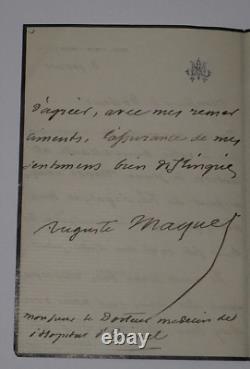 d'agréer, avec mes remer
ciments, l'assurance de mes
sentimens bien distingués
Auguste Maquet
monsieur le Docteur medecin de
l'hopital
© watch-store.co.uk